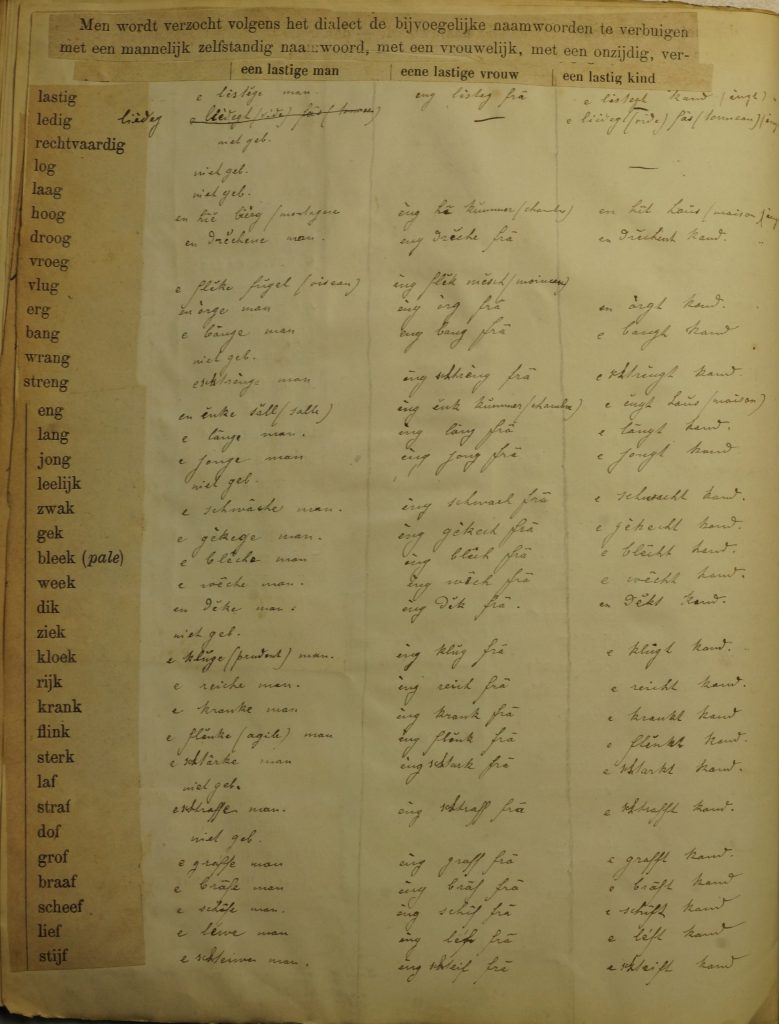 Men wordt verzocht volgens het dialect de bijvoegelijke naamwoorden te verbuigen
met een mannelijk zelfstandig naamwoord, met een vrouwelijk, met een onzijdig, ver-
een lastige man eene lastige vrouw een lastig kind
lastig e listige man. eng listeg frä e listegt kand
ledig liedeg e liedegt (vide) fas (tonneau) — e liedegt (vide) fas (tonneau)
rechtvaardig niet geb.
log niet geb. —
laag niet geb.
hoog en hië bierg (montagne ëng hë kummer (chambre) en hët haus (maison)
droog en drëchene man. eng drëche frä en drëchent kand.
vroeg
vlug e flëke fugel (oiseau) ëng flëk mësch (moineau)
erg en örge man ëng örg frä en örgt kand.
bang e bänge man eng bang frä e bangt kand
wrang niet geb.
streng e schtrënge man ëng schtrëng frä e schtrëngt kand.
eng en ënke säll (salle) ëng ënk kummer (chambre) e ëngt haus (maison)
lang e länge man. ëng läng frä e längt kand.
jong e jonge man ëng jong frä e jongt kand
leelijk niet geb.
zwak e schwäche man ëng schwach frä e schwacht kand.
gek e gëkege man. ëng gëkech frä e gëkecht kand.
bleek (pale) e blëche man ëng blëch frä e blëcht kand.
week e wëche man. ëng wëch frä e wëcht kand.
dik en dëke man. ëng dëk frä. en dëkt kand.
ziek niet geb.
kloek e kluge (prudent) man. ëng klug frä e klugt kand.
rijk e reiche man. ëng reich frä e reicht kand.
krank e kranke man ëng krank frä e krankt kand
flink e flënke (agile) man ëng flënk frä e flënkt kand.
sterk e schtärke man ëng schtark frä e schtarkt kand.
laf niet geb.
straf e schtraffe man. ëng schtraff frä e schtrafft kand.
dof niet geb.
grof e graffe man ëng graff frä e grafft kand.
braaf e bräfe man ëng bräf frä e bräft kand
scheef e schife man. ëng schif frä e schift kand
lief e lëwe man ëng lëf frä e lëft kand
stijf e schteiwe man. ëng schteif frä e schteift kand